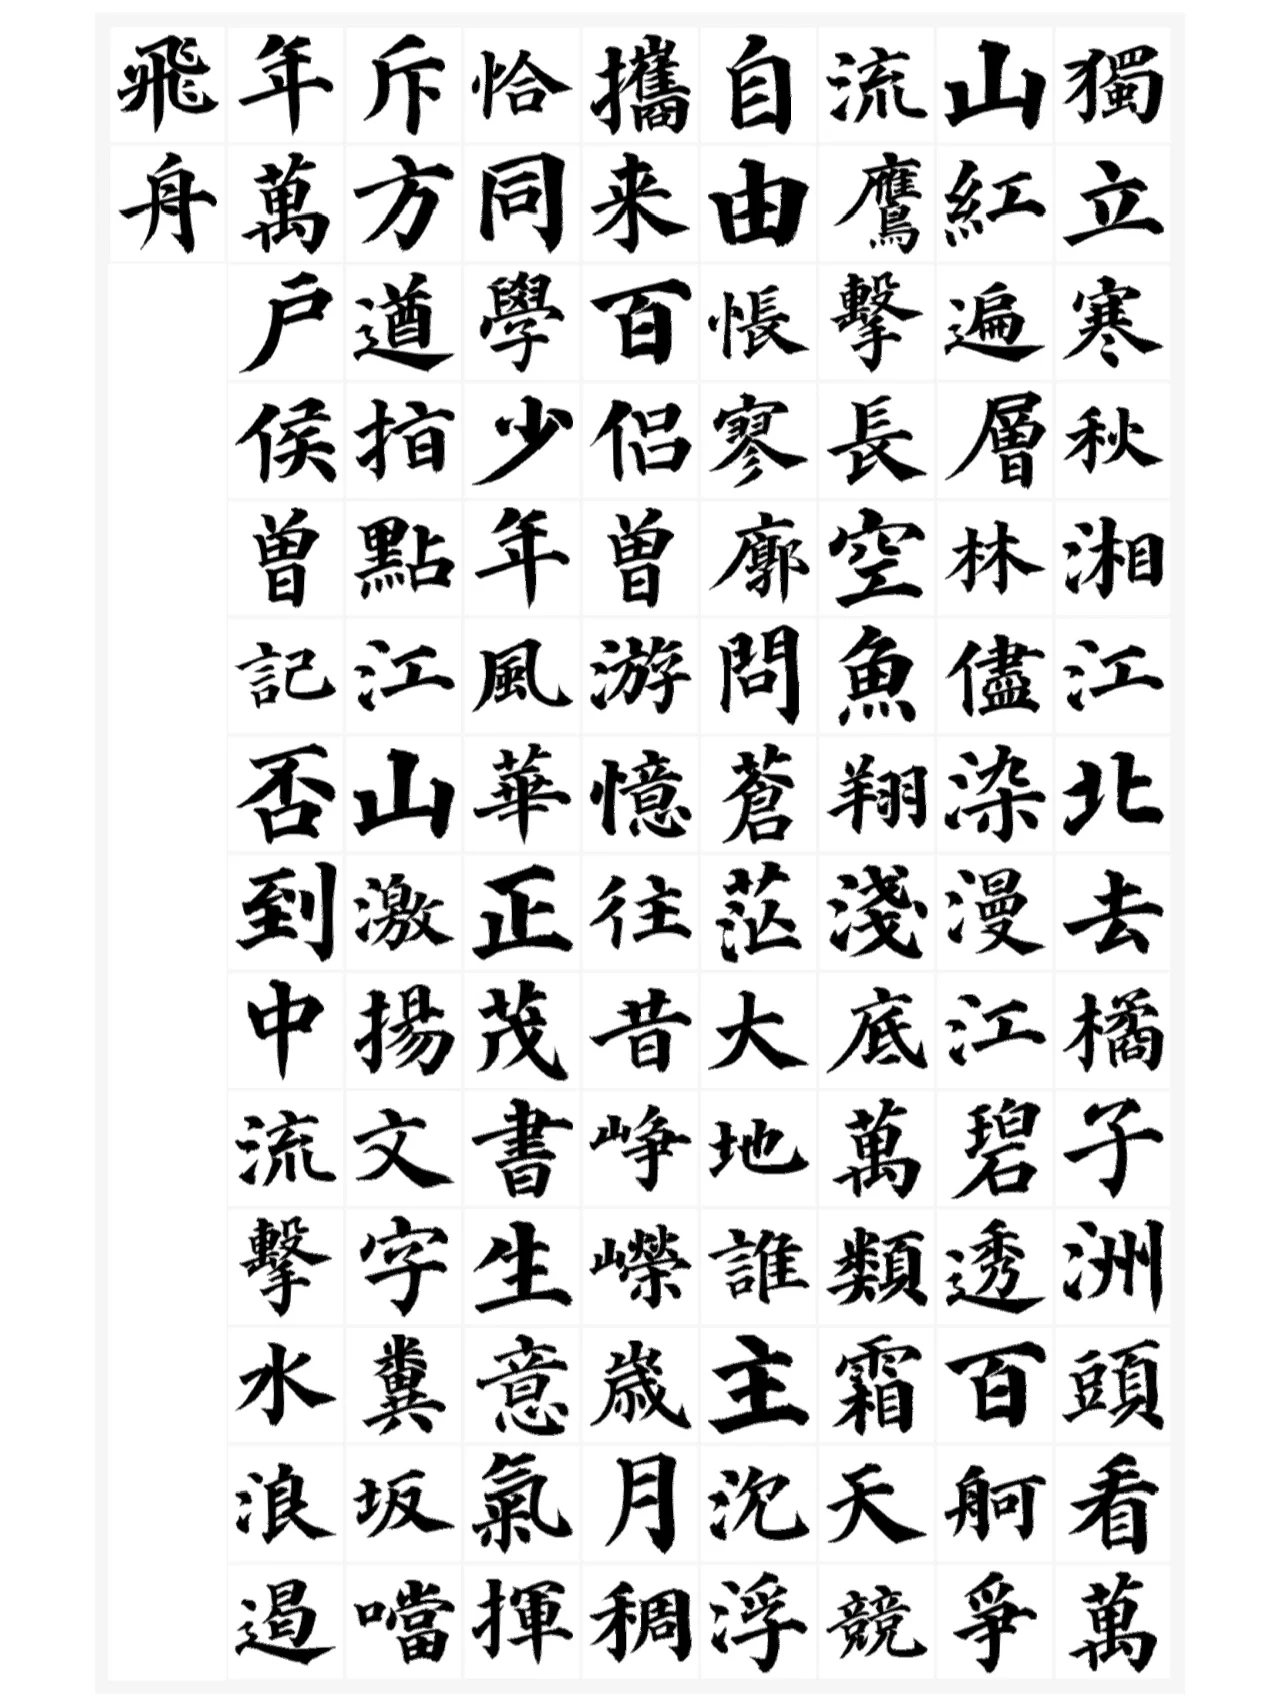 獨立寒秋湘江北去橘子洲頭看萬
山紅遍層林儘染漫江碧透百舸爭
流鷹擊長空魚翔淺底萬類霜天競
自由悵寥廓問蒼茫大地誰主沈浮
攜来百侶曾游憶往昔崢嶸歲月稠
恰同學少年風華正茂書生意氣揮
斥方遒指點江山激揚文字糞坂噹
年萬户侯曾記否到中流擊水浪遏
飛舟